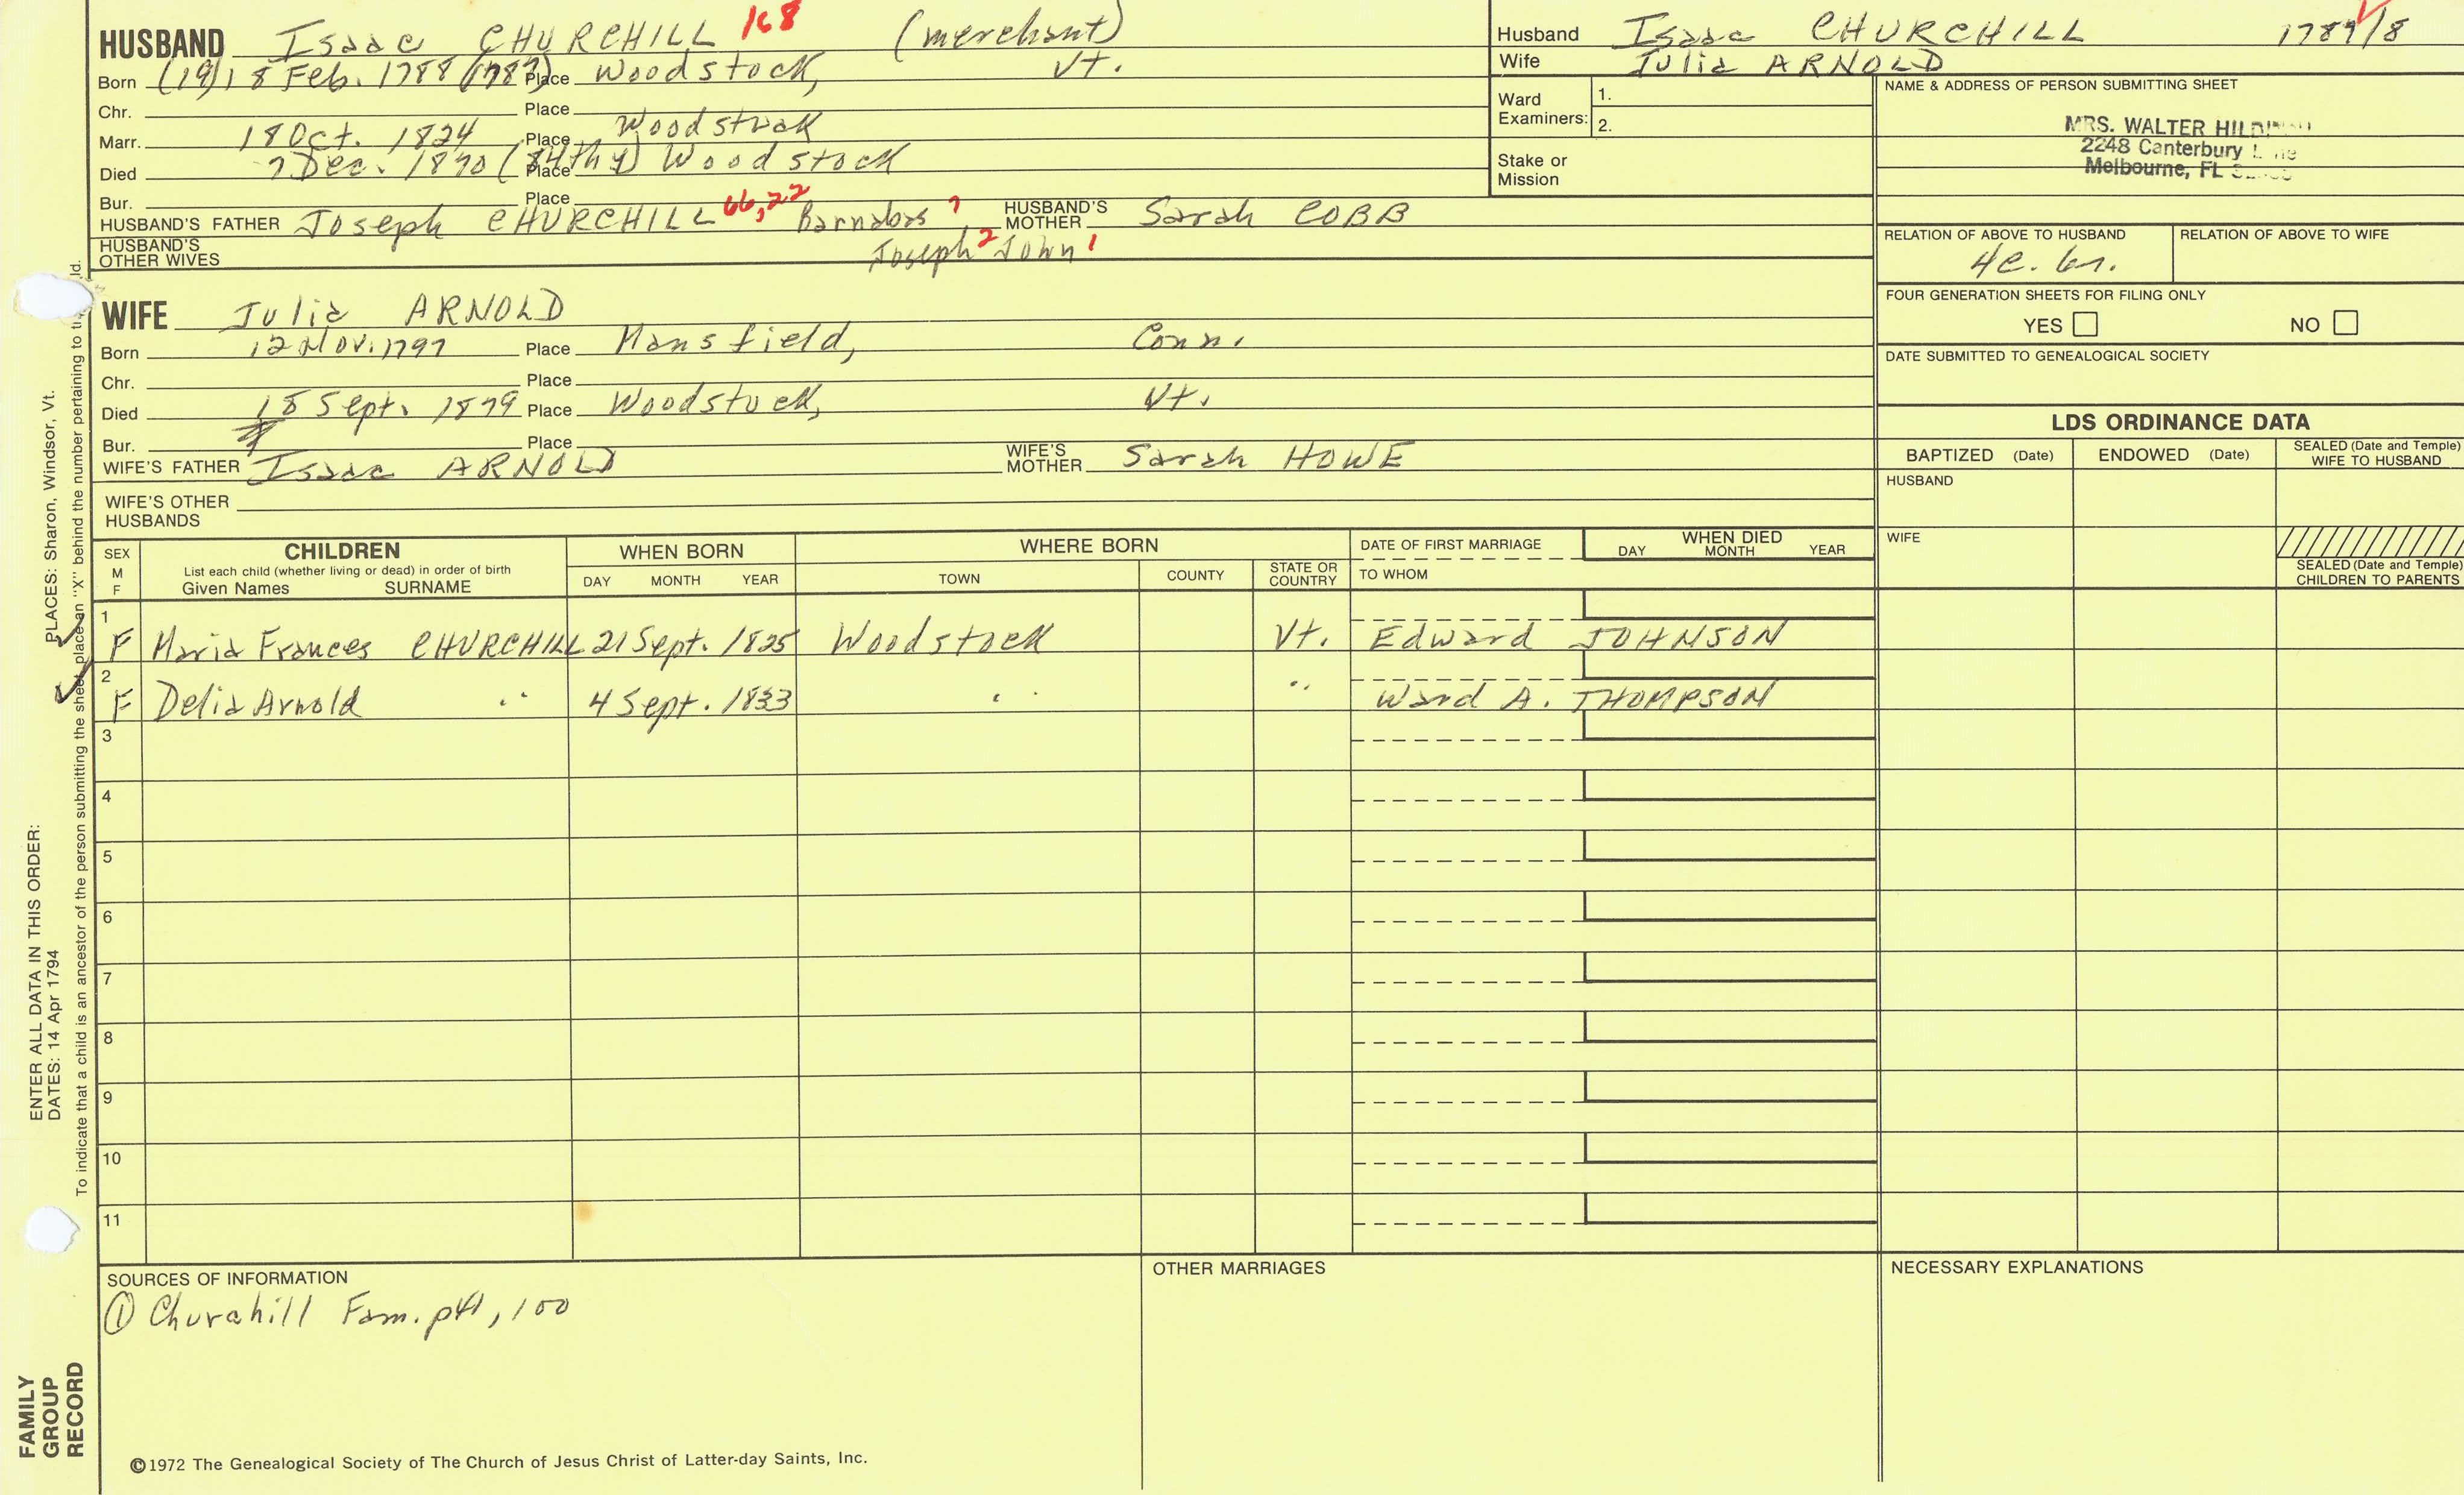 HUSBAND Isaac CHURCHILL 168 (merchant)
Born (19)18 Feb. 1788 (1787) Place Woodstock, Vt.
Chr. Place
Marr. 18 Oct. 1824 Place Woodstock
Died 7 Dec. 1870 (84th y) Place Woodstock
Bur. Place
HUSBAND'S FATHER Joseph CHURCHILL 66,22 Barnabas HUSBAND'S MOTHER Sarah COBB
HUSBAND'S OTHER WIVES Joseph 2 John 1
WIFE Julia ARNOLD
Born 12 Nov. 1797 Place Mansfield, Conn.
Chr. Place
Died 18 Sept. 1879 Place Woodstock, Vt.
Bur. Place
WIFE'S FATHER Isaac ARNOLD WIFE'S MOTHER Sarah HOWE
WIFE'S OTHER HUSBANDS
Husband Isaac CHURCHILL 1787/8
Wife Julia ARNOLD
Ward Examiners: 1.
2.
Stake or Mission
NAME & ADDRESS OF PERSON SUBMITTING SHEET
MRS. WALTER
2248 Canterbury
Melbourne, FL
RELATION OF ABOVE TO HUSBAND RELATION OF ABOVE TO WIFE
4c. 6r.
FOUR GENERATION SHEETS FOR FILING ONLY
YES NO
DATE SUBMITTED TO GENEALOGICAL SOCIETY
LDS ORDINANCE DATA
BAPTIZED (Date) ENDOWED (Date) SEALED (Date and Temple) WIFE TO HUSBAND
HUSBAND
WIFE
SEALED (Date and Temple) CHILDREN TO PARENTS
SEX M F CHILDREN List each child (whether living or dead) in order of birth Given Names SURNAME WHEN BORN DAY MONTH YEAR WHERE BORN TOWN COUNTY STATE OR COUNTRY DATE OF FIRST MARRIAGE TO WHOM WHEN DIED DAY MONTH YEAR
1 F Maria Frances CHURCHILL 21 Sept. 1825 Woodstock Vt. Edward JOHNSON
2 F Delia Arnold " 4 Sept. 1833 " " Ward A. THOMPSON
3
4
5
6
7
8
9
10
11
SOURCES OF INFORMATION
① Churchill Fam. p41, 100
OTHER MARRIAGES
NECESSARY EXPLANATIONS
©1972 The Genealogical Society of The Church of Jesus Christ of Latter-day Saints, Inc.
FAMILY GROUP RECORD
ENTER ALL DATA IN THIS ORDER:
DATES: 14 Apr 1794
PLACES: Sharon, Windsor, Vt.
To indicate that a child is an ancestor of the person submitting the sheet, place an "X" behind the number pertaining to